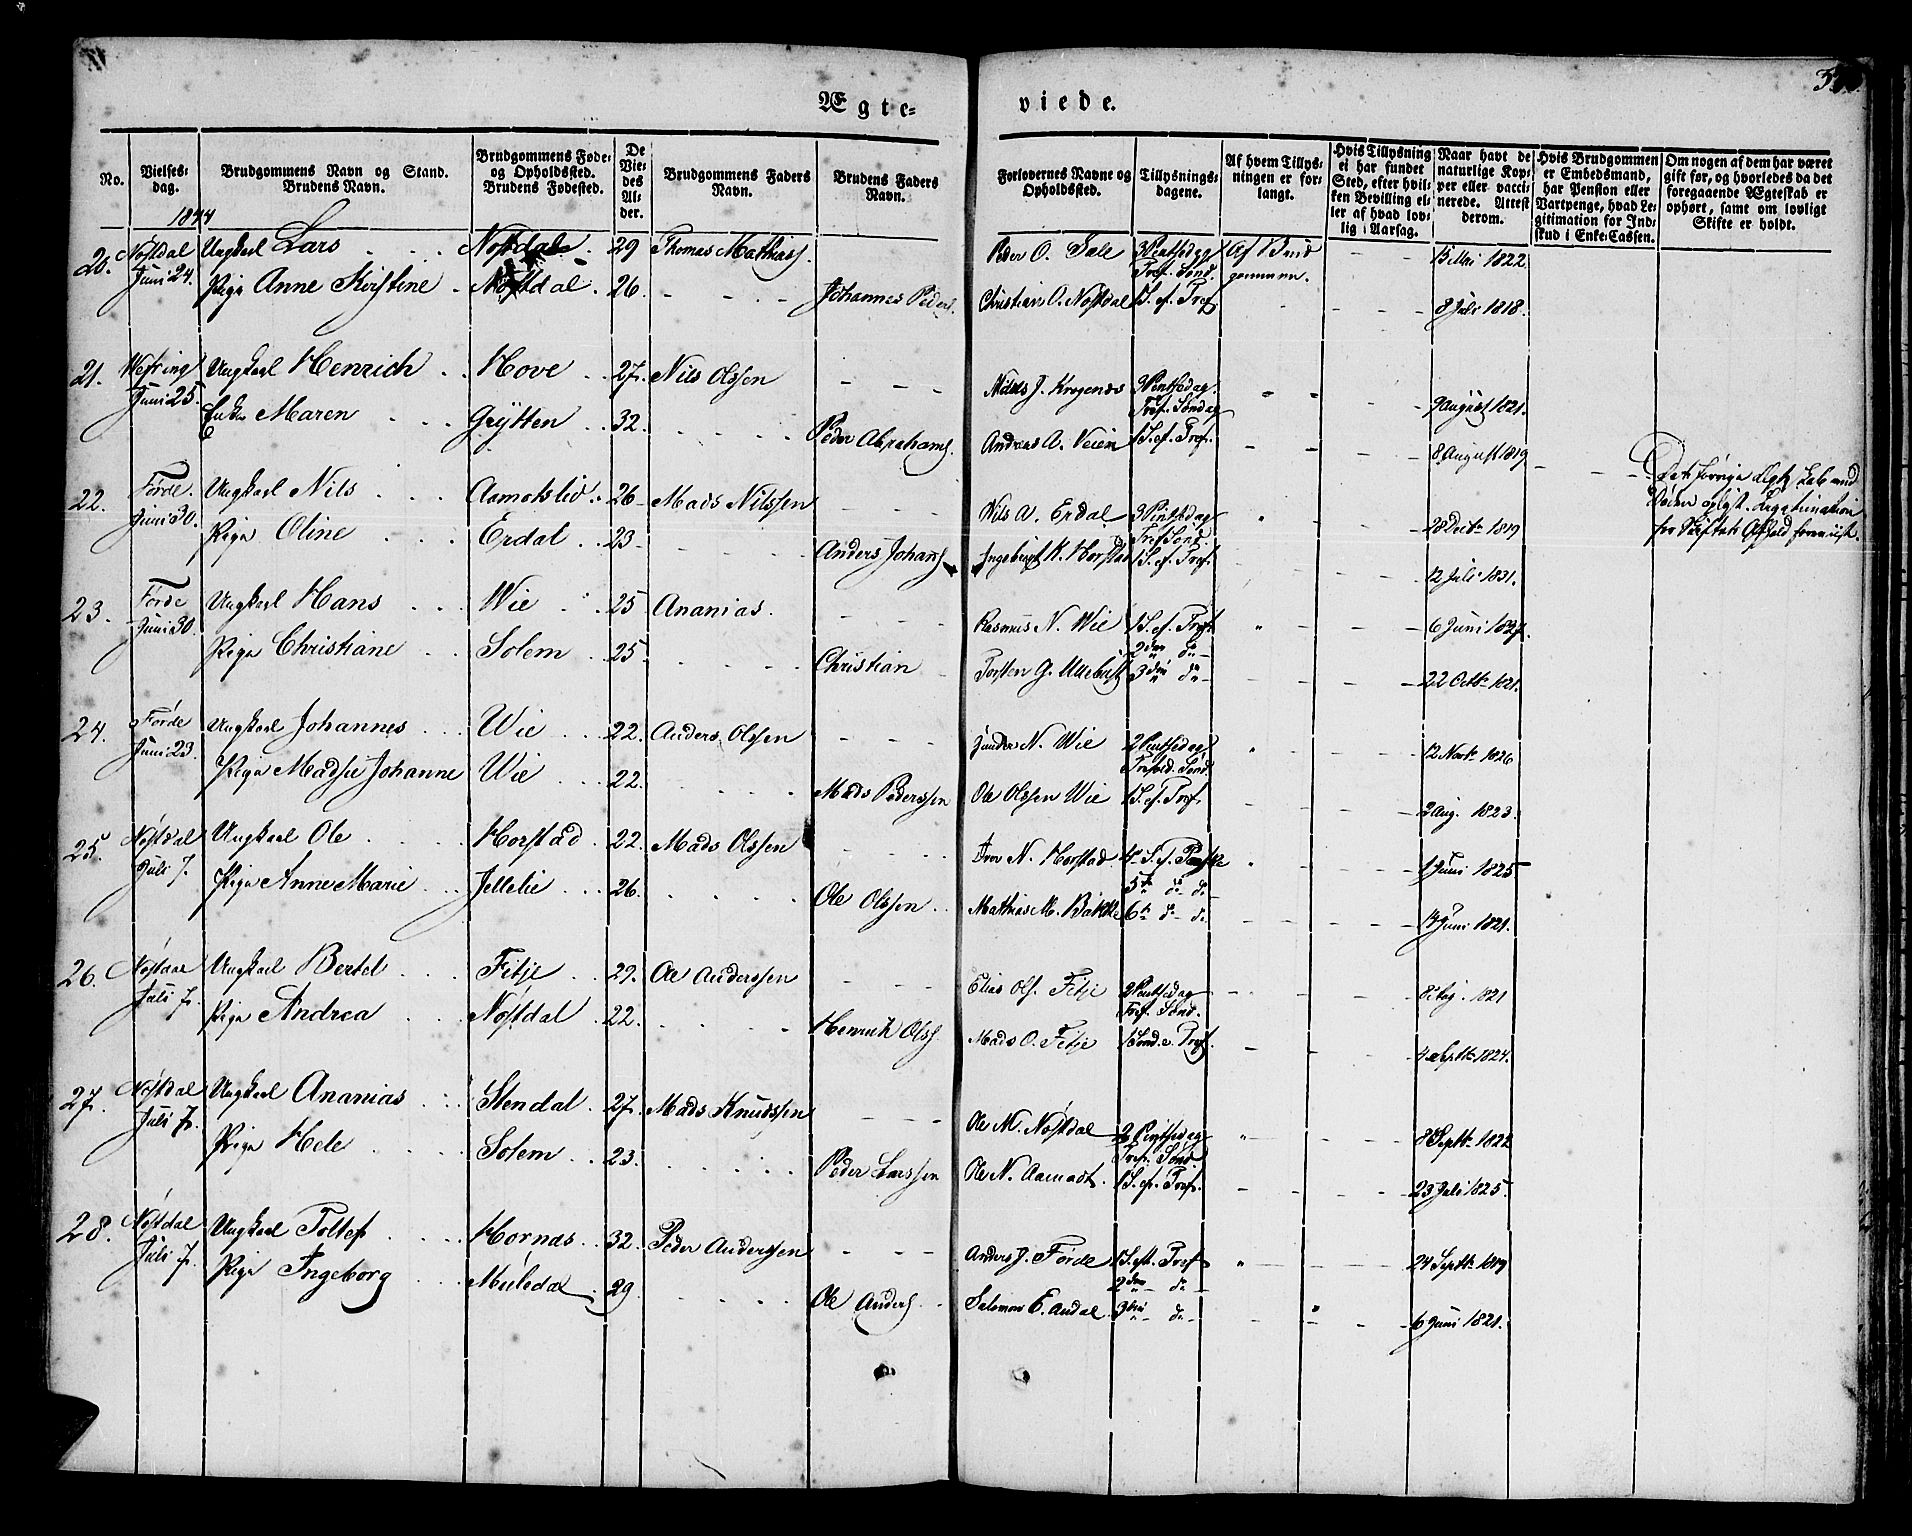 Ægte-
viede.
No.
Vielses-
dag.
Brudgommens Navn og Stand.
Brudens Navn.
Brudgommens Føde-
og Opholdssted.
Brudens Fødested.
De
Vie-
des
Al-
der.
Brudgommens Faders
Navn.
Brudens Faders
Navn.
Forlovernes Navne og
Opholdssted.
Tillysnings-
dagene.
Af hvem Tillys-
ningen er for-
langt.
Hvis Tillysning
ei har fundet
Sted, efter hvil-
ken Bevilling el-
ler af hvad lov-
lig i Aarsag.
Naar havt de
naturlige Kop-
per eller vacci-
nerede. Attest
derom.
Hvis Brudgommen
er Embedsmand,
har Pension eller
Vartpenge, hvad Le-
gitimation for Ind-
skud i Enke-Cassen.
Om nogen af dem har været
gift før, og hvorledes da det
foregaaende Ægteskab er
ophørt, samt om lovligt
Skifte er holdt.
1844
20. Nøstdal Ungkarl Lars Nøstdal 29 Thomas Mathias. Peder O. Sale 3 Pintsedag Af Brud 15 Mai 1822
Juni 24. Tref. Sønd. gommen.
Pige Anne Kirstine Nøstdal 26 Johannes Peders. Christian O. Nøstdal 1 S. ef. Tref. 8 Juli 1818.
21. Wefring Ungkarl Henrich Hove 27. Nils Olssen J. Krogenæs 3 Pintsedag 9 August 1821.
Juni 25. Tref. Søndag
Enke Maren Grÿtten 32. Peder Abrahams. Andreas A. Veien 1 S. ef. Tref. 8 August 1819
22. Førde Ungkarl Nils Aamotslid 26 Mads Nilssen Nils A. Erdal 3 Pintsdag 28 Decbr 1819
Juni 30. Tref. Sønd.
Pige Oline Erdal 23 Anders Johans. Ingebrigt K. Horstad 1 S. ef. Tref. 12 Juli 1831.
23. Førde Ungkarl Hans Wie 25 Ananias. Rasmus N. Wie 1 S. ef. Tref. 6 Juni 1827.
Juni 30. 2den do
Pige Christiane Solem 25 Christian Torsten G. 3die do 22 Octbr 1821.
24. Førde Ungkarl Johannes Wie 22. Anders Olssen N. Wie 2 Pintsedag 12 Novbr 1826
Juni 23. Trefold. Sønd.
Pige Madsie Johanne Wie 22. Mads Pederssen Ole Olssen Wie 1 S. ef. Tref. 2 Aug. 1823.
25. Nøstdal Ungkarl Ole Horstad 22. Mads Olssen N. Horstad 4 S. ef. Paaske 1 Juni 1825
Juli 7. 5te do do
Pige Anne Marie Jellelie 26. Ole Olssen Mathias M. Bakke 6te do do 14 Juni 1821.
26. Nøstdal Ungkarl Bertel Fitje 29. Ole Anderssen Elias Ols. Fitje 2 Pintsedag 1821
Juli 7. Tref. Sønd.
Pige Andrea Nøstdal 22. Henrich Olss. Mads O. Fitje 1 Sønd. e. Tref. 4 Septbr 1824.
27. Nøstdal Ungkarl Ananias Stendal 27. Mads Knudssen Ole M. Nøstdal 2 Pintsedag 8 Septbr 1822
Juli 7. Tref. Sønd.
Pige Hele Solem 23. Peder Larssen Ole N. Aamodt. 1 S. ef. Tref. 23 Juli 1825.
28. Nøstdal Ungkarl Tollef Hornæs 32. Peder Anderssen Anders J. Førde 1 S. eft. Tref. 24 Septbr 1819
Juli 7. 2den do
Pige Ingeborg Muledal 29 Ole Anders. Salomon E. Andal 3die do 6 Juni 1821.